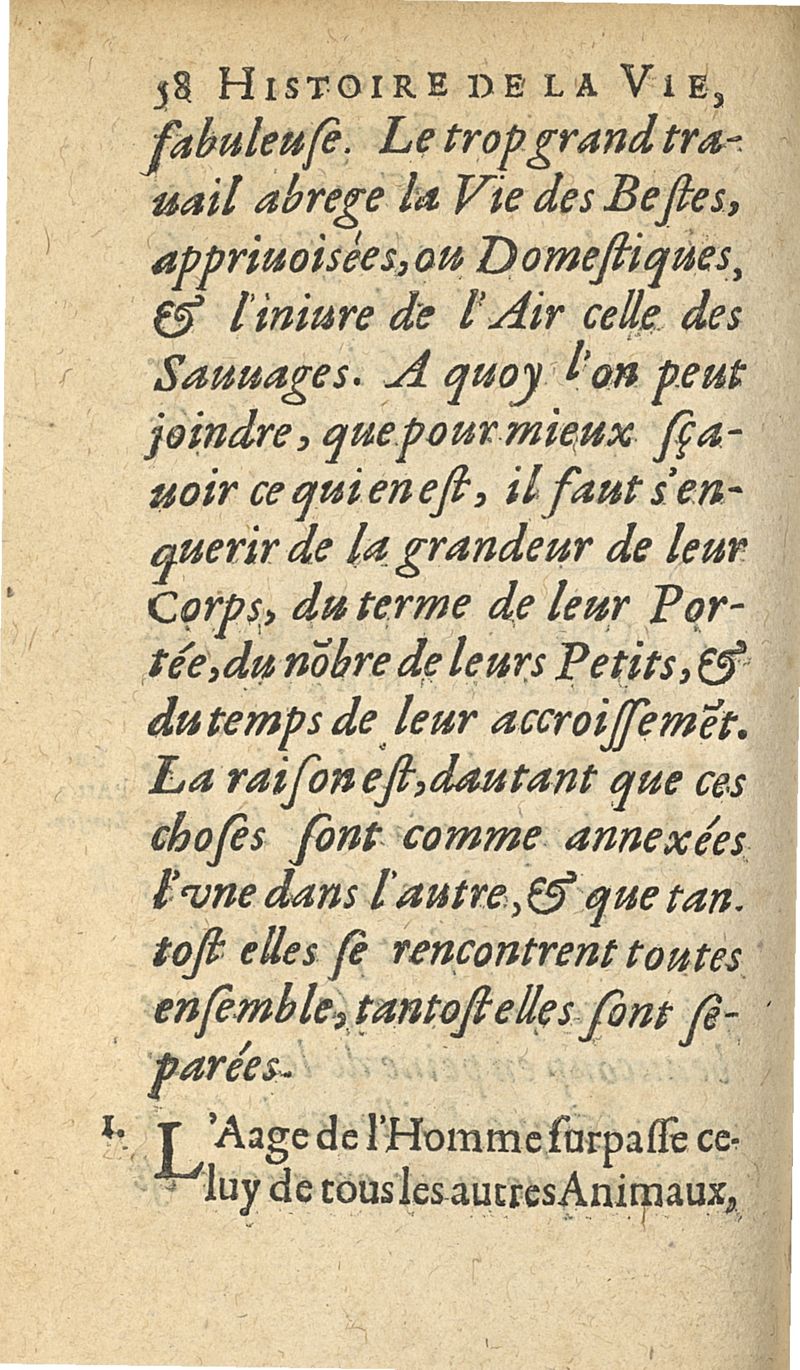 58 HISTOIRE DE LA VIE,
fabuleuſe. Le trop grand tra-
uail abrege la Vie des Beſtes,
appriuoisées, ou Domeſtiques,
& l'iniure de l'Air celle des
Sauuages. A quoy l'on peut
joindre, que pour mieux ſça-
uoir ce qui en eſt, il faut s'en-
querir de la grandeur de leur
Corps, du terme de leur Por-
tée, du nõbre de leurs Petits, &
du temps de leur accroiſſemẽt.
La raiſon eſt, dautant que ces
choſes ſont comme annexées
l'vne dans l'autre, & que tan-
toſt elles ſe rencontrent toutes
enſemble, tantoſt elles ſont ſe-
parées.
1. L'Aage de l'Homme ſurpaſſe ce-
luy de tous les autres Animaux,